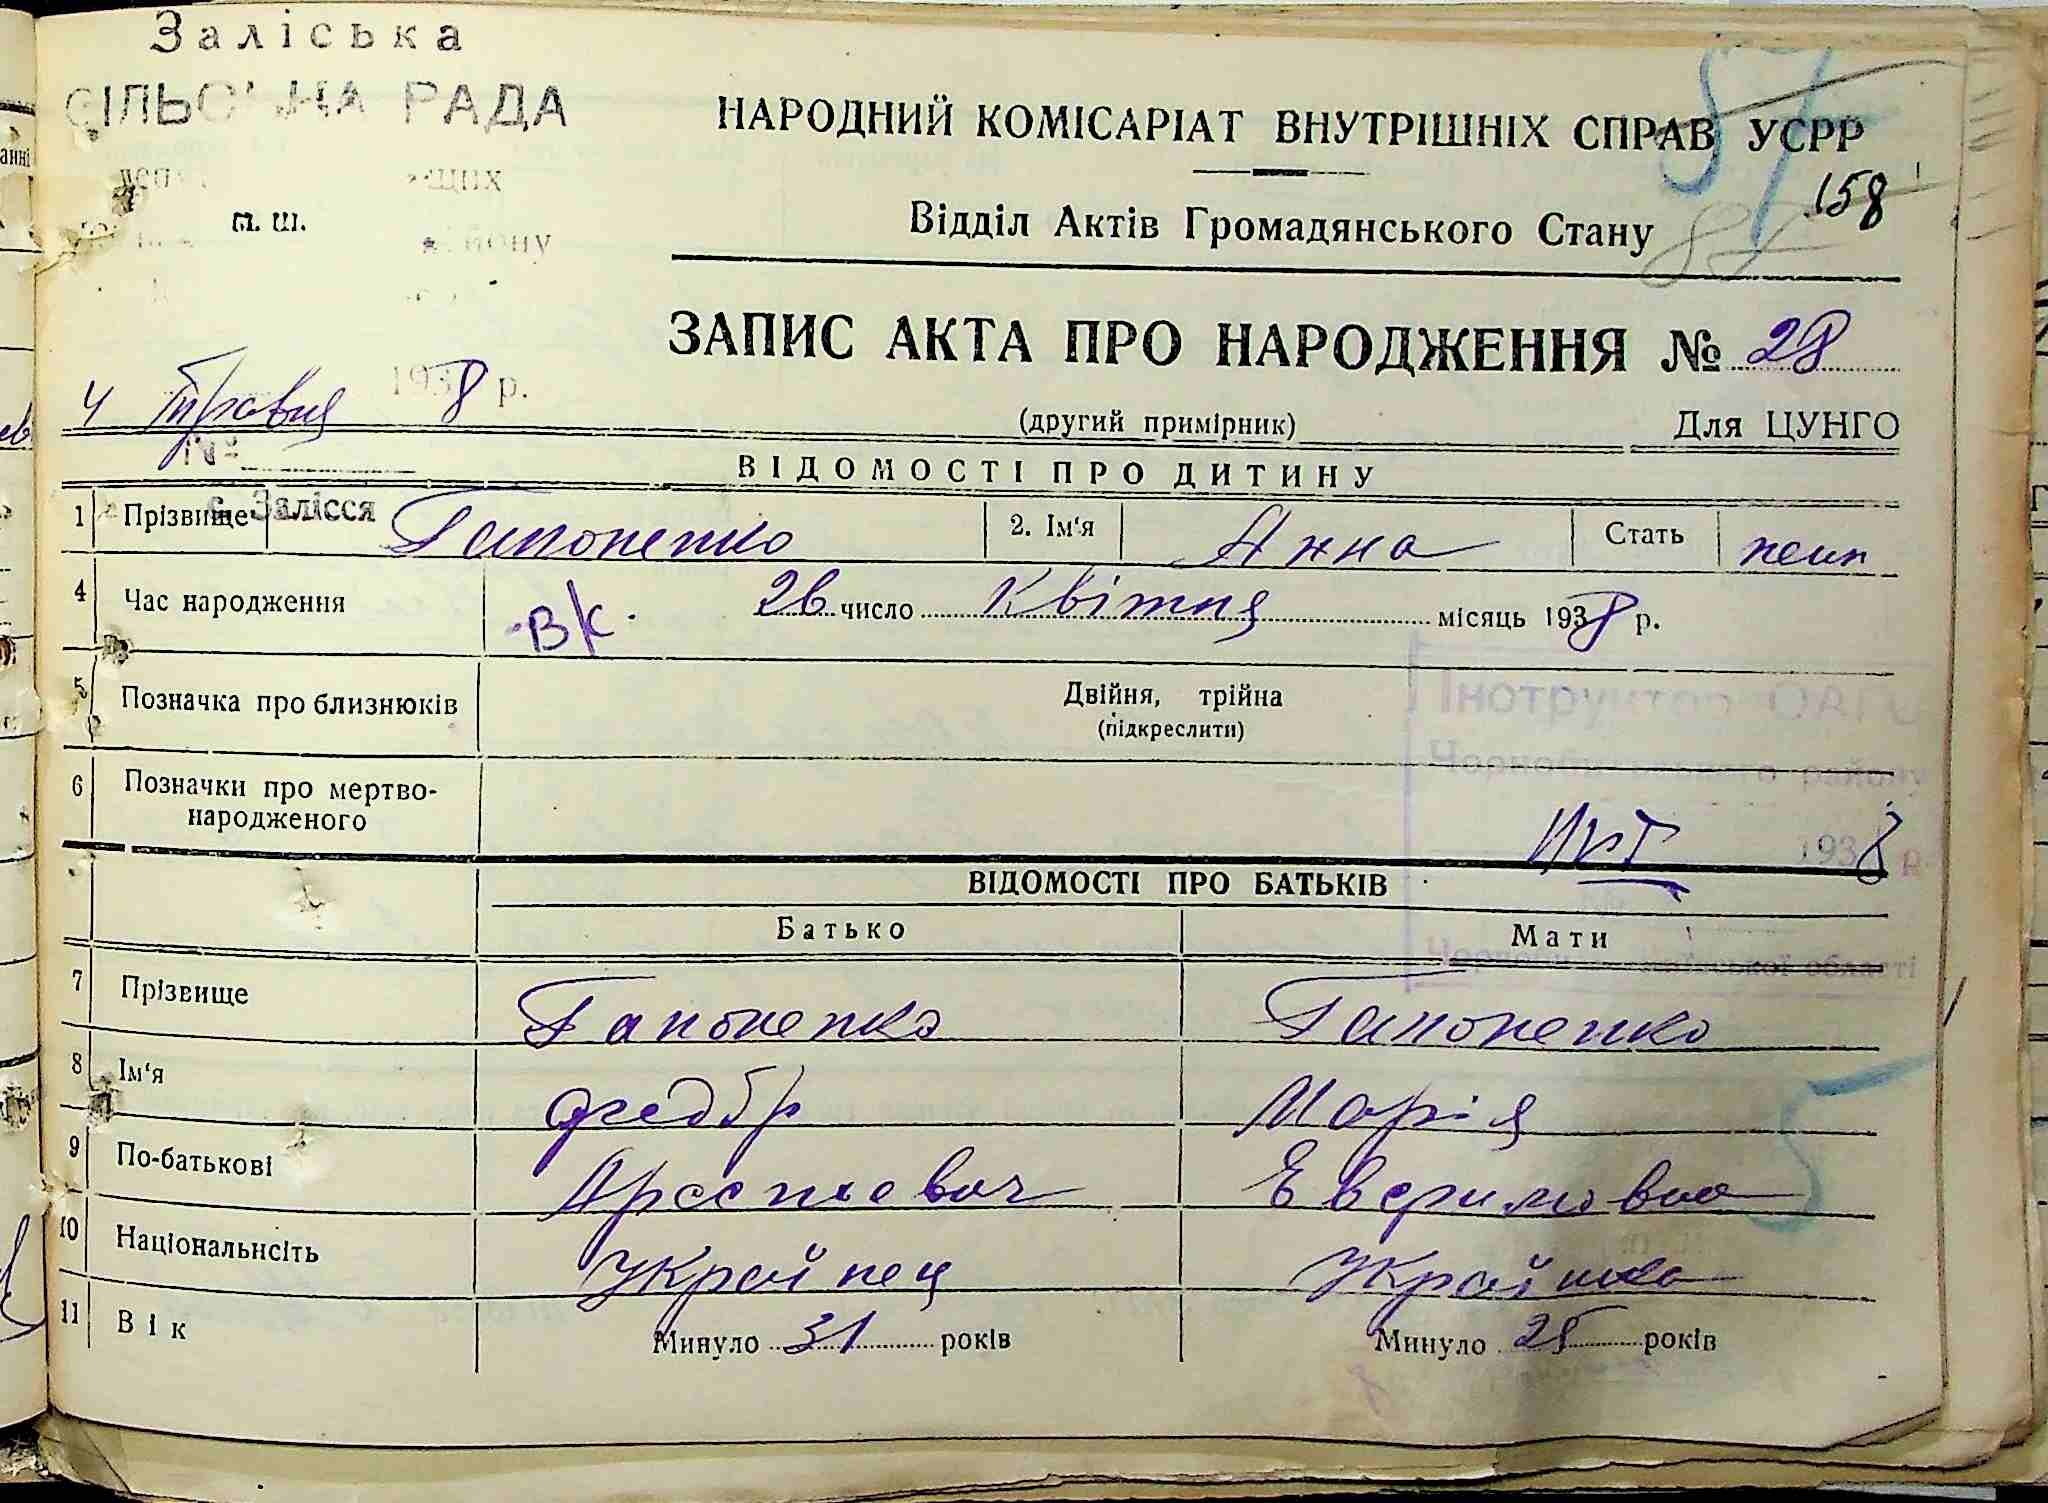 Заліська
СІЛЬСЬКА РАДА
п. ш.
4 травня 1938 р.
№
с. Залісся
57
НАРОДНИЙ КОМІСАРІАТ ВНУТРІШНІХ СПРАВ УСРР
158
Відділ Актів Громадянського Стану
87
ЗАПИС АКТА ПРО НАРОДЖЕННЯ № 28
(другий примірник) Для ЦУНГО
ВІДОМОСТІ ПРО ДИТИНУ
1 Прізвище Гапоненко 2. Ім'я Анна Стать жен
4 Час народження вк. 26 число Квітня місяць 1938 р.
5 Позначка про близнюків Двійня, трійна
(підкреслити)
Інструктор ОАГС
Чорнобильського району
6 Позначки про мертво-
народженого
1938 р.
ВІДОМОСТІ ПРО БАТЬКІВ
Батько Мати
Київської області
7 Прізвище Гапоненко Гапоненко
8 Ім'я Федір Марія
9 По-батькові Арсентєвич
10 Національнсіть Украйнец Украйнка
11 Вік Минуло 31 років Минуло 25 років
5